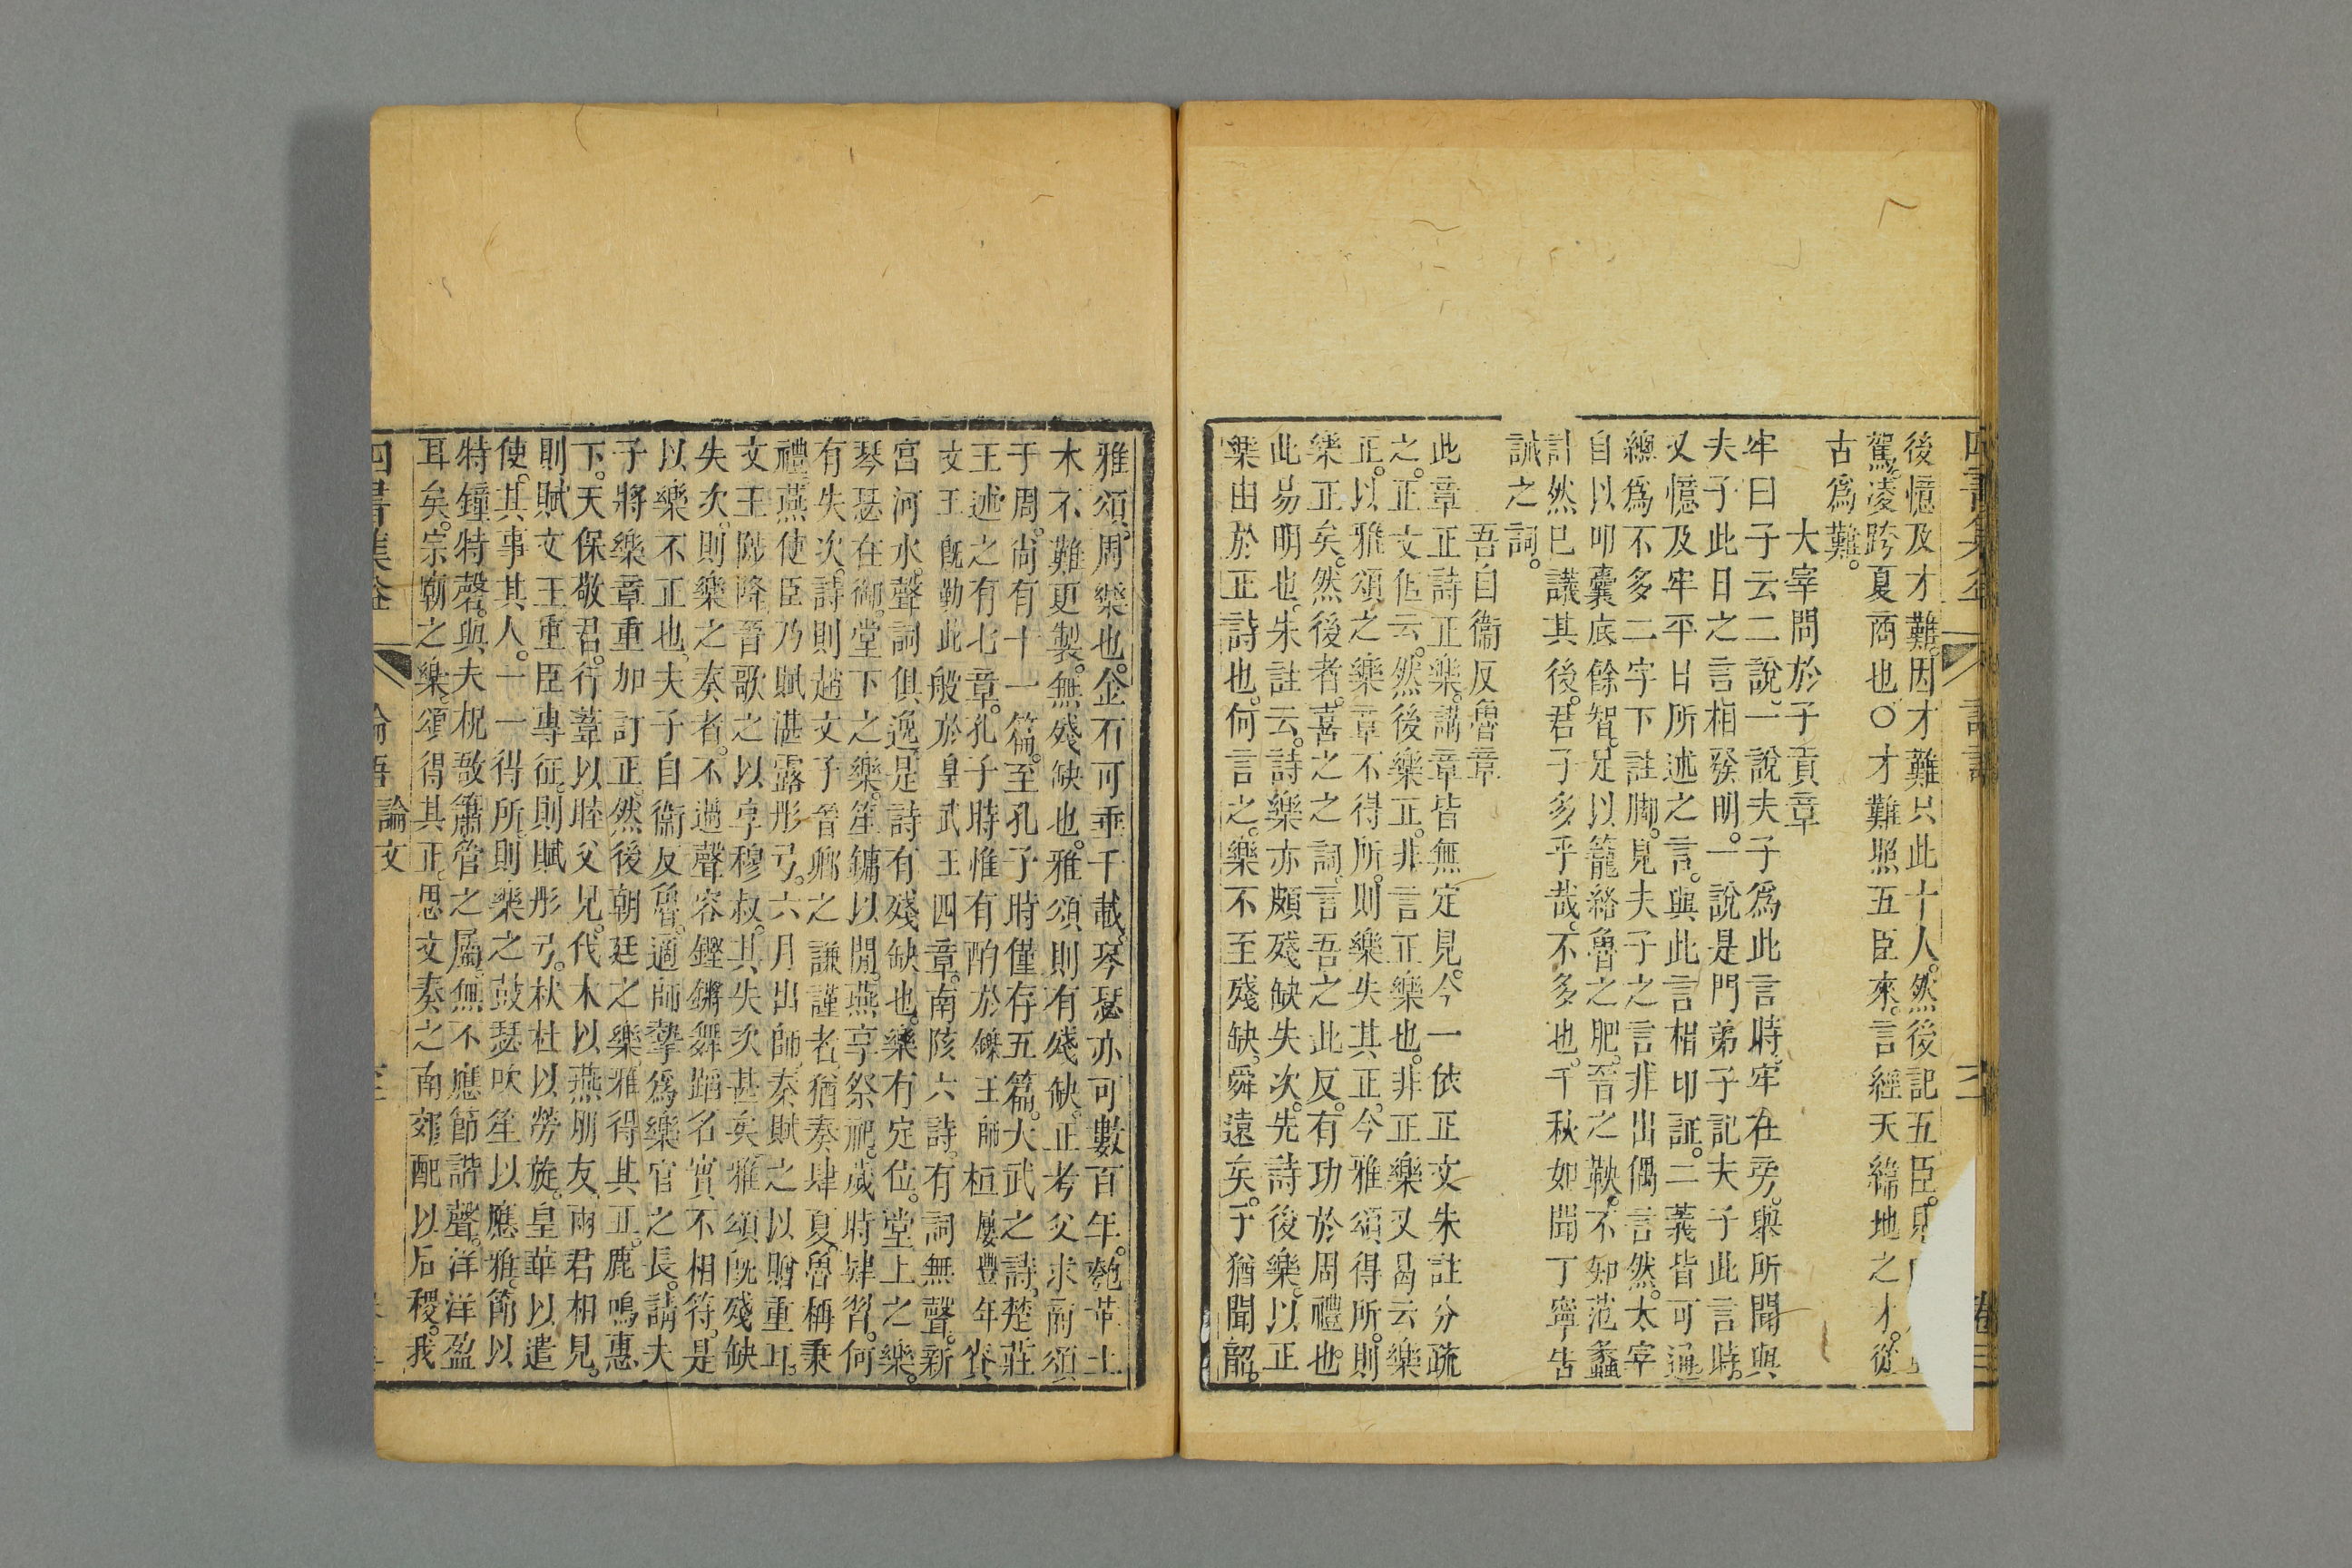 後憶及才難因才難只此十人。然後記五臣。
駕。凌跨夏商也〇才難照五臣來。言經天緯地之才。從
古爲難。
大宰問於子貢章
牢曰子云二說。一說夫子爲此言時。牢在旁。舉所聞與
夫子此日之言相發明。一說是門弟子記夫子此言時。
又憶及牢平日所述之言。與此言相印証。二義皆可通
總爲不多二字下註脚。見夫子之言非出偶言然。太宰
自以叩囊底餘智。足以籠絡魯之肥。晉之鞅。不知范蠡
計然已議其後。君子多乎哉。不多也。千秋如聞丁寧告
誡之詞。
吾自衞反魯章
此章正詩正樂。講章皆無定見。今一依正文朱註分疏
之。正文但云。然後樂正。非言正樂也。非正樂又曷云樂
正。以雅頌之樂章不得所。則樂失其正。今雅頌得所。則
樂正矣。然後者。喜之之詞。言吾之此反。有功於周禮也。
此易明也。朱註云。詩樂亦頗殘缺失次。先詩後樂。以正
樂由於正詩也。何言之。樂不至殘缺。舜遠矣。于猶聞韶。
雅頌。周樂也。金石可垂千載。琴瑟亦可數百年。匏革土
木不難更製。無殘缺也。雅頌則有殘缺。正考父求商頌
于周。尚有十一篇。至孔子時僅存五篇。大武之詩。楚莊
王述之有七章。孔子時惟有酌於鑠王師桓屢豐年賚
文王旣勤此般於皇武王四章。南陔六詩。有詞無聲。新
宮河水。聲詞俱逸。是詩有殘缺也。樂有定位。堂上之樂。
琴瑟在御。堂下之樂。笙鏞以閒。燕享祭祀。歲時肄習。何
有失次。詩則趙文子晉卿之謙謹者。猶奏肆夏。魯稱秉
禮。燕使臣乃賦湛露彤弓。六月出師。秦賦之以贈重耳。
文王陟降。晉歌之以享穆叔。其失次甚矣。雅頌旣殘缺
失次。則樂之奏者。不過聲容鏗鏘舞蹈名實不相符。是
以樂不正也。夫子自衞反魯。適師摯爲樂官之長。請夫
子將樂章重加訂正。然後朝廷之樂。雅得其正。鹿鳴惠
下。天保敬君。行葦以睦父兄。代木以燕朋友。兩君相見。
則賦文王。重臣專征。則賦彤弓。杕杜以勞旋。皇華以遣
使。其事其人。一一得所。則樂之鼓瑟吹笙。以應雅。簫以
特鐘特磬。與夫柷敔簫管之屬。無不應節諧聲。洋洋盈
耳矣。宗廟之樂。頌得其正。思文奏之南郊。配以后稷。我
四書集益 論語 論文